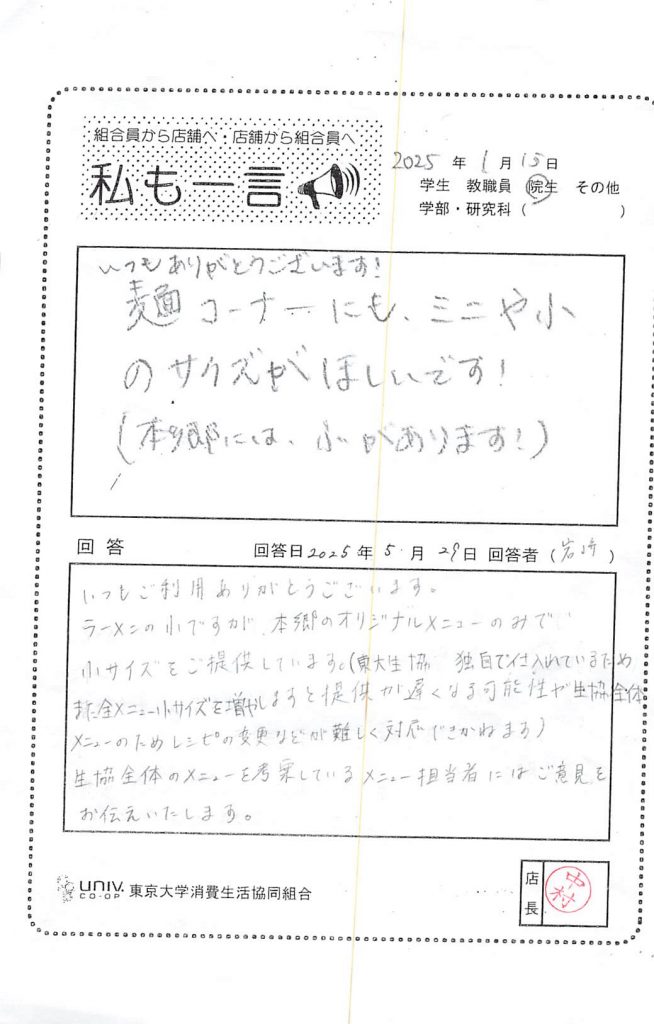 組合員から店舗へ・店舗から組合員へ
私も一言
2025 年 1 月 15 日
学生 教職員 院生 その他
学部・研究科 ( )
いつもありがとうございます!
麺コーナーにも、ミニや小
のサイズがほしいです!
(本郷には、小があります!)
回答 回答日 2025 年 5 月 29 日 回答者 (岩崎)
いつもご利用ありがとうございます。
ラーメンの小ですが、本郷のオリジナルメニューのみで
小サイズをご提供しています。(東大生協 独自で仕入れているため
また全メニュー小サイズを増やしますと提供が遅くなる可能性や生協全体
メニューのためレシピの変更などが難しく対応できかねます)
生協全体のメニューを考案しているメニュー担当者にはご意見を
お伝えいたします。
UNIV. CO-OP 東京大学消費生活協同組合
店長 中村